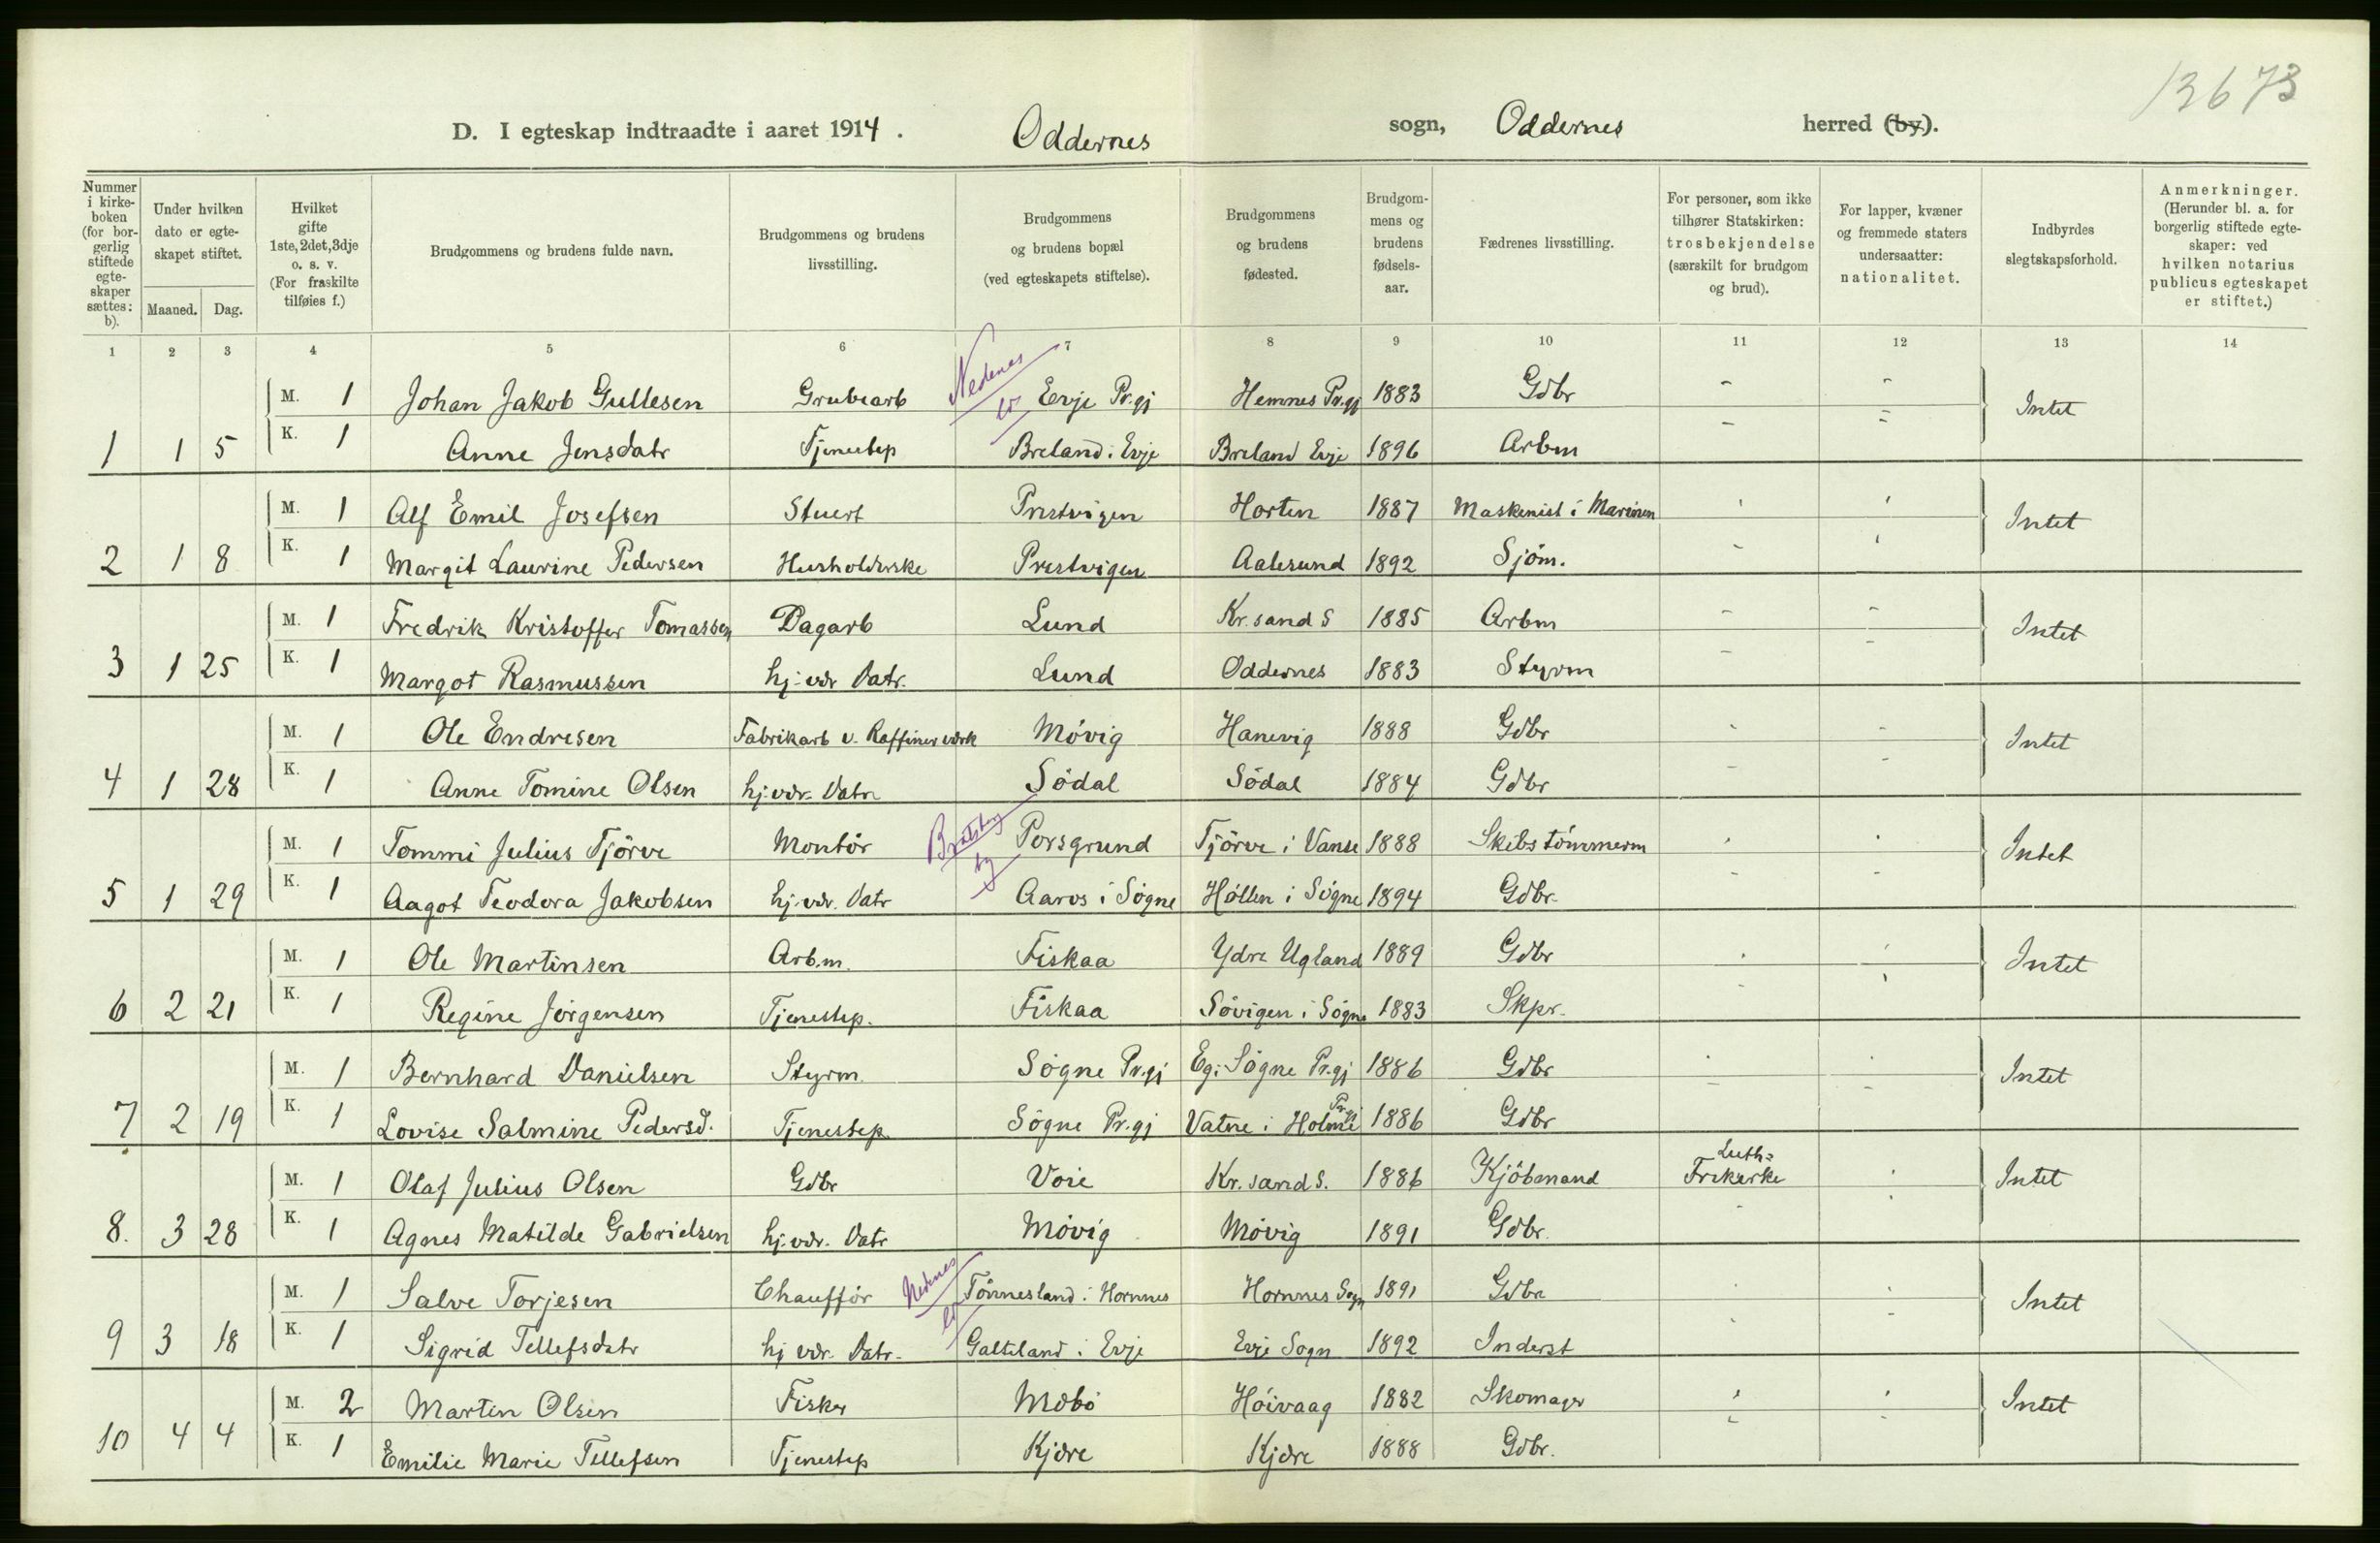 13673
D. I egteskap indtraadte i aaret 1914. Oddernes sogn, Oddernes herred (by).
Nummer i kirkeboken (for borgerlig stiftede egteskaper sættes: b).
Under hvilken dato er egteskapet stiftet.
Maaned. Dag.
Hvilket gifte 1ste, 2det, 3dje o. s. v. (For fraskilte tilføies f.)
Brudgommens og brudens fulde navn.
Brudgommens og brudens livsstilling.
Brudgommens og brudens bopæl (ved egteskapets stiftelse).
Brudgommens og brudens fødested.
Brudgommens og brudens fødselsaar.
Fædrenes livsstilling.
For personer, som ikke tilhører Statskirken: trosbekjendelse (særskilt for brudgom og brud).
For lapper, kvæner og fremmede staters undersaatter: nationalitet.
Indbyrdes slegtskapsforhold.
Anmerkninger. (Herunder bl. a. for borgerlig stiftede egteskaper: ved hvilken notarius publicus egteskapet er stiftet.)
1 2 3 4 5 6 7 8 9 10 11 12 13 14
M. 1 Johan Jakob Gullesen Grubearb Nedenes Evje Pr.gj Hemnes Pr.gj 1883 Gdbr - - Intet
1 1 5 K. 1 Anne Jensdatr Tjenestep Breland i Evje Breland Evje 1896 Arbm - -
M. 1 Alf Emil Josefsen Stuert Prestvigen Horten 1887 Maskenist i Marinen Intet
2 1 8 K. 1 Margit Laurine Pedersen Husholderske Prestvigen Aalesund 1892 Sjöm.
M. 1 Fredrik Kristoffer Tomassen Dagarb Lund Kr.sand S 1885 Arbm - - Intet
3 1 25 K. 1 Margot Rasmussen hj. vær Datr. Lund Oddernes 1883 Styrm - -
M. 1 Ole Endresen Fabrikarb v. Raffinerværk Móvig Hanevig 1888 Gdbr - - Intet
4 1 28 K. 1 Anne Tomine Olsen hj. vær. Datr Södal Södal 1884 Gdbr - -
M. 1 Tommi Julius Tjörve Montör Bratsberg by Porsgrund Tjörve i Vanse 1888 Skibstömmerm Intet
5 1 29 K. 1 Aagot Teodora Jakobsen hj. vær. Datr Aaros i Sögne Höllen i Sögne 1894 Gdbr. - -
M. 1 Ole Martinsen Arb.m. Fiskaa Ydre Ugland 1889 Gdbr Intet
6 2 21 K. 1 Regine Jörgensen Tjenestep. Fiskaa Sövigen i Sögne 1883 Skpr.
M. 1 Bernhard Danielsen Styrm. Sögne Pr.gj Eg i Sögne Pr.gj 1886 Gdbr Intet
7 2 19 K. 1 Lovise Salmine Pedersd. Tjenestep. Sögne Pr.gj Vatne i Holme Pr.gj 1886 Gdbr - -
M. 1 Olaf Julius Olsen Gdbr Voie Kr.sand S. 1886 Kjöbmand Luth: Frikirke Intet
8. 3 28 K. 1 Agnes Matilde Gabrielsen hj. vær. Datr Móvig Móvig 1891 Gdbr.
M. 1 Salve Torjesen Chaufför Nedenes Tönnesland i Hornnes Hornnes Sogn 1891 Gdbr Intet
9 3 18 K. 1 Sigrid Tellefsdatr hj vær. Datr. Galteland i Evje Evje Sogn 1892 Inderst
M. 2 Martin Olsen Fisker Mæbö Höivaag 1882 Skomager Intet
10 4 4 K. 1 Emilie Marie Tellefsen Tjenestep Kjære Kjære 1888 Gdbr.